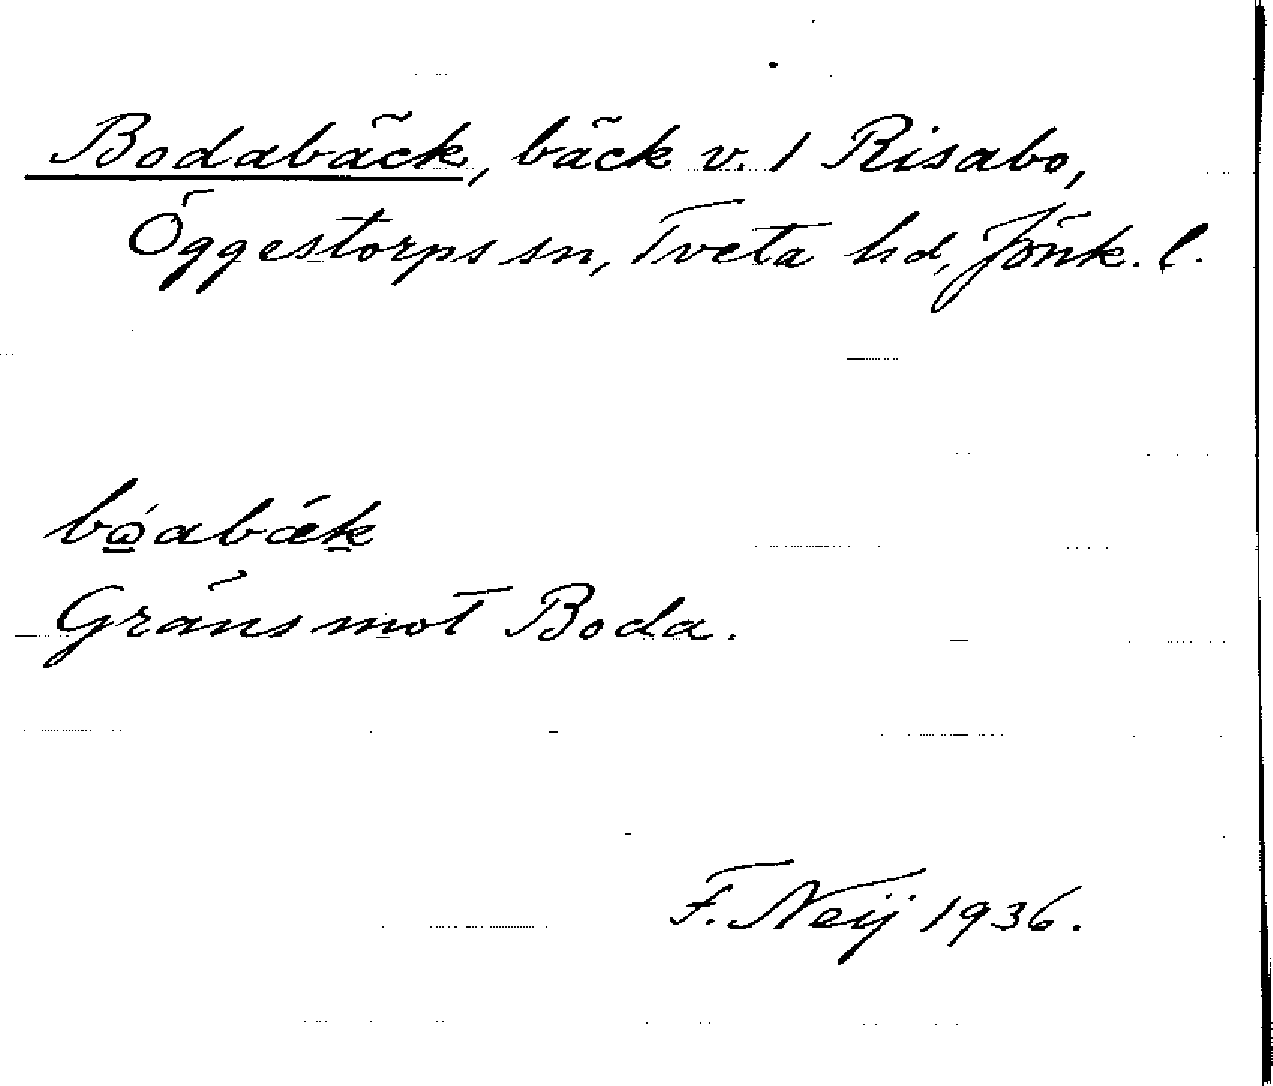 Bodabäck, bäck v. 1 Risabo,
Öggestorps sn, Tveta hd, Jönk. l.
bó̲abæ̀k̲
Gräns mot Boda.
F. Neij 1936.